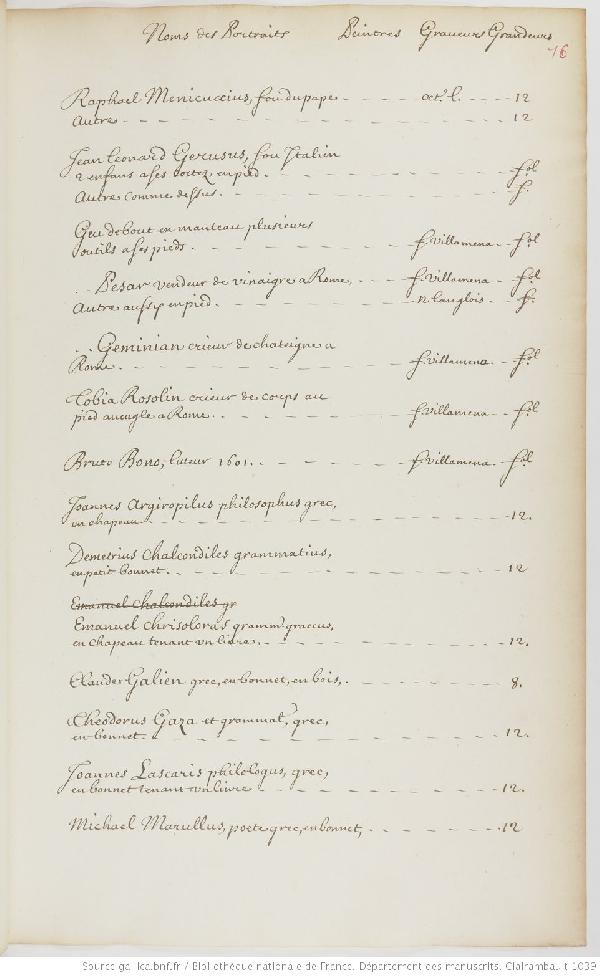 Noms des Portraits Peintres Graveurs Grandeurs
76
Raphael Menicuccius, fou du pape - - - - oct. l. - - - - 12
Autre - - - - - - 12
Jean Leonard Gerusus, fou Italien
2 enfans a ses costez, en pied. - - - - fol
Autre comme dessus. - - - - f.
Gueux debout en manteau plusieurs
outils a ses pieds - - - - f. Villamena - - fol
... Besar vendeur de vinaigre a Rome, - - f. Villamena - - fol
Autre aussy en pied. - - - - n. langlois - - f.
... Geminian crieur de chateigne a
Rome - - - - f. Villamena - - fol
Tobia Rosolin crieur de corps au
pied aveugle a Rome. - - - - f. Villamena - - fol
Bruto Bono, luteur 1601. - - - - f. Villamena - - fol
Joannes Argiropilus philosophus grec,
en chapeau - - - - 12.
Demetrius Chalcondiles grammatius,
en petit bonnet. - - - - 12
Emanuel Chalcondiles gr
Emanuel Chrisoloras gramm. graecus,
en chapeau tenant vn livre. - - - - 12.
Claude Galien grec, en bonnet, en bois, - - - - 8.
Theodorus Gaza et grammat. grec,
en bonnet. - - - - 12.
Joannes Lascaris philologus, grec,
en bonnet tenant vn livre - - - - 12.
Michael Marullus, poete grec, en bonnet, - - - - 12
Source gallica.bnf.fr / Bibliothèque nationale de France. Département des manuscrits. Clairambault 1039